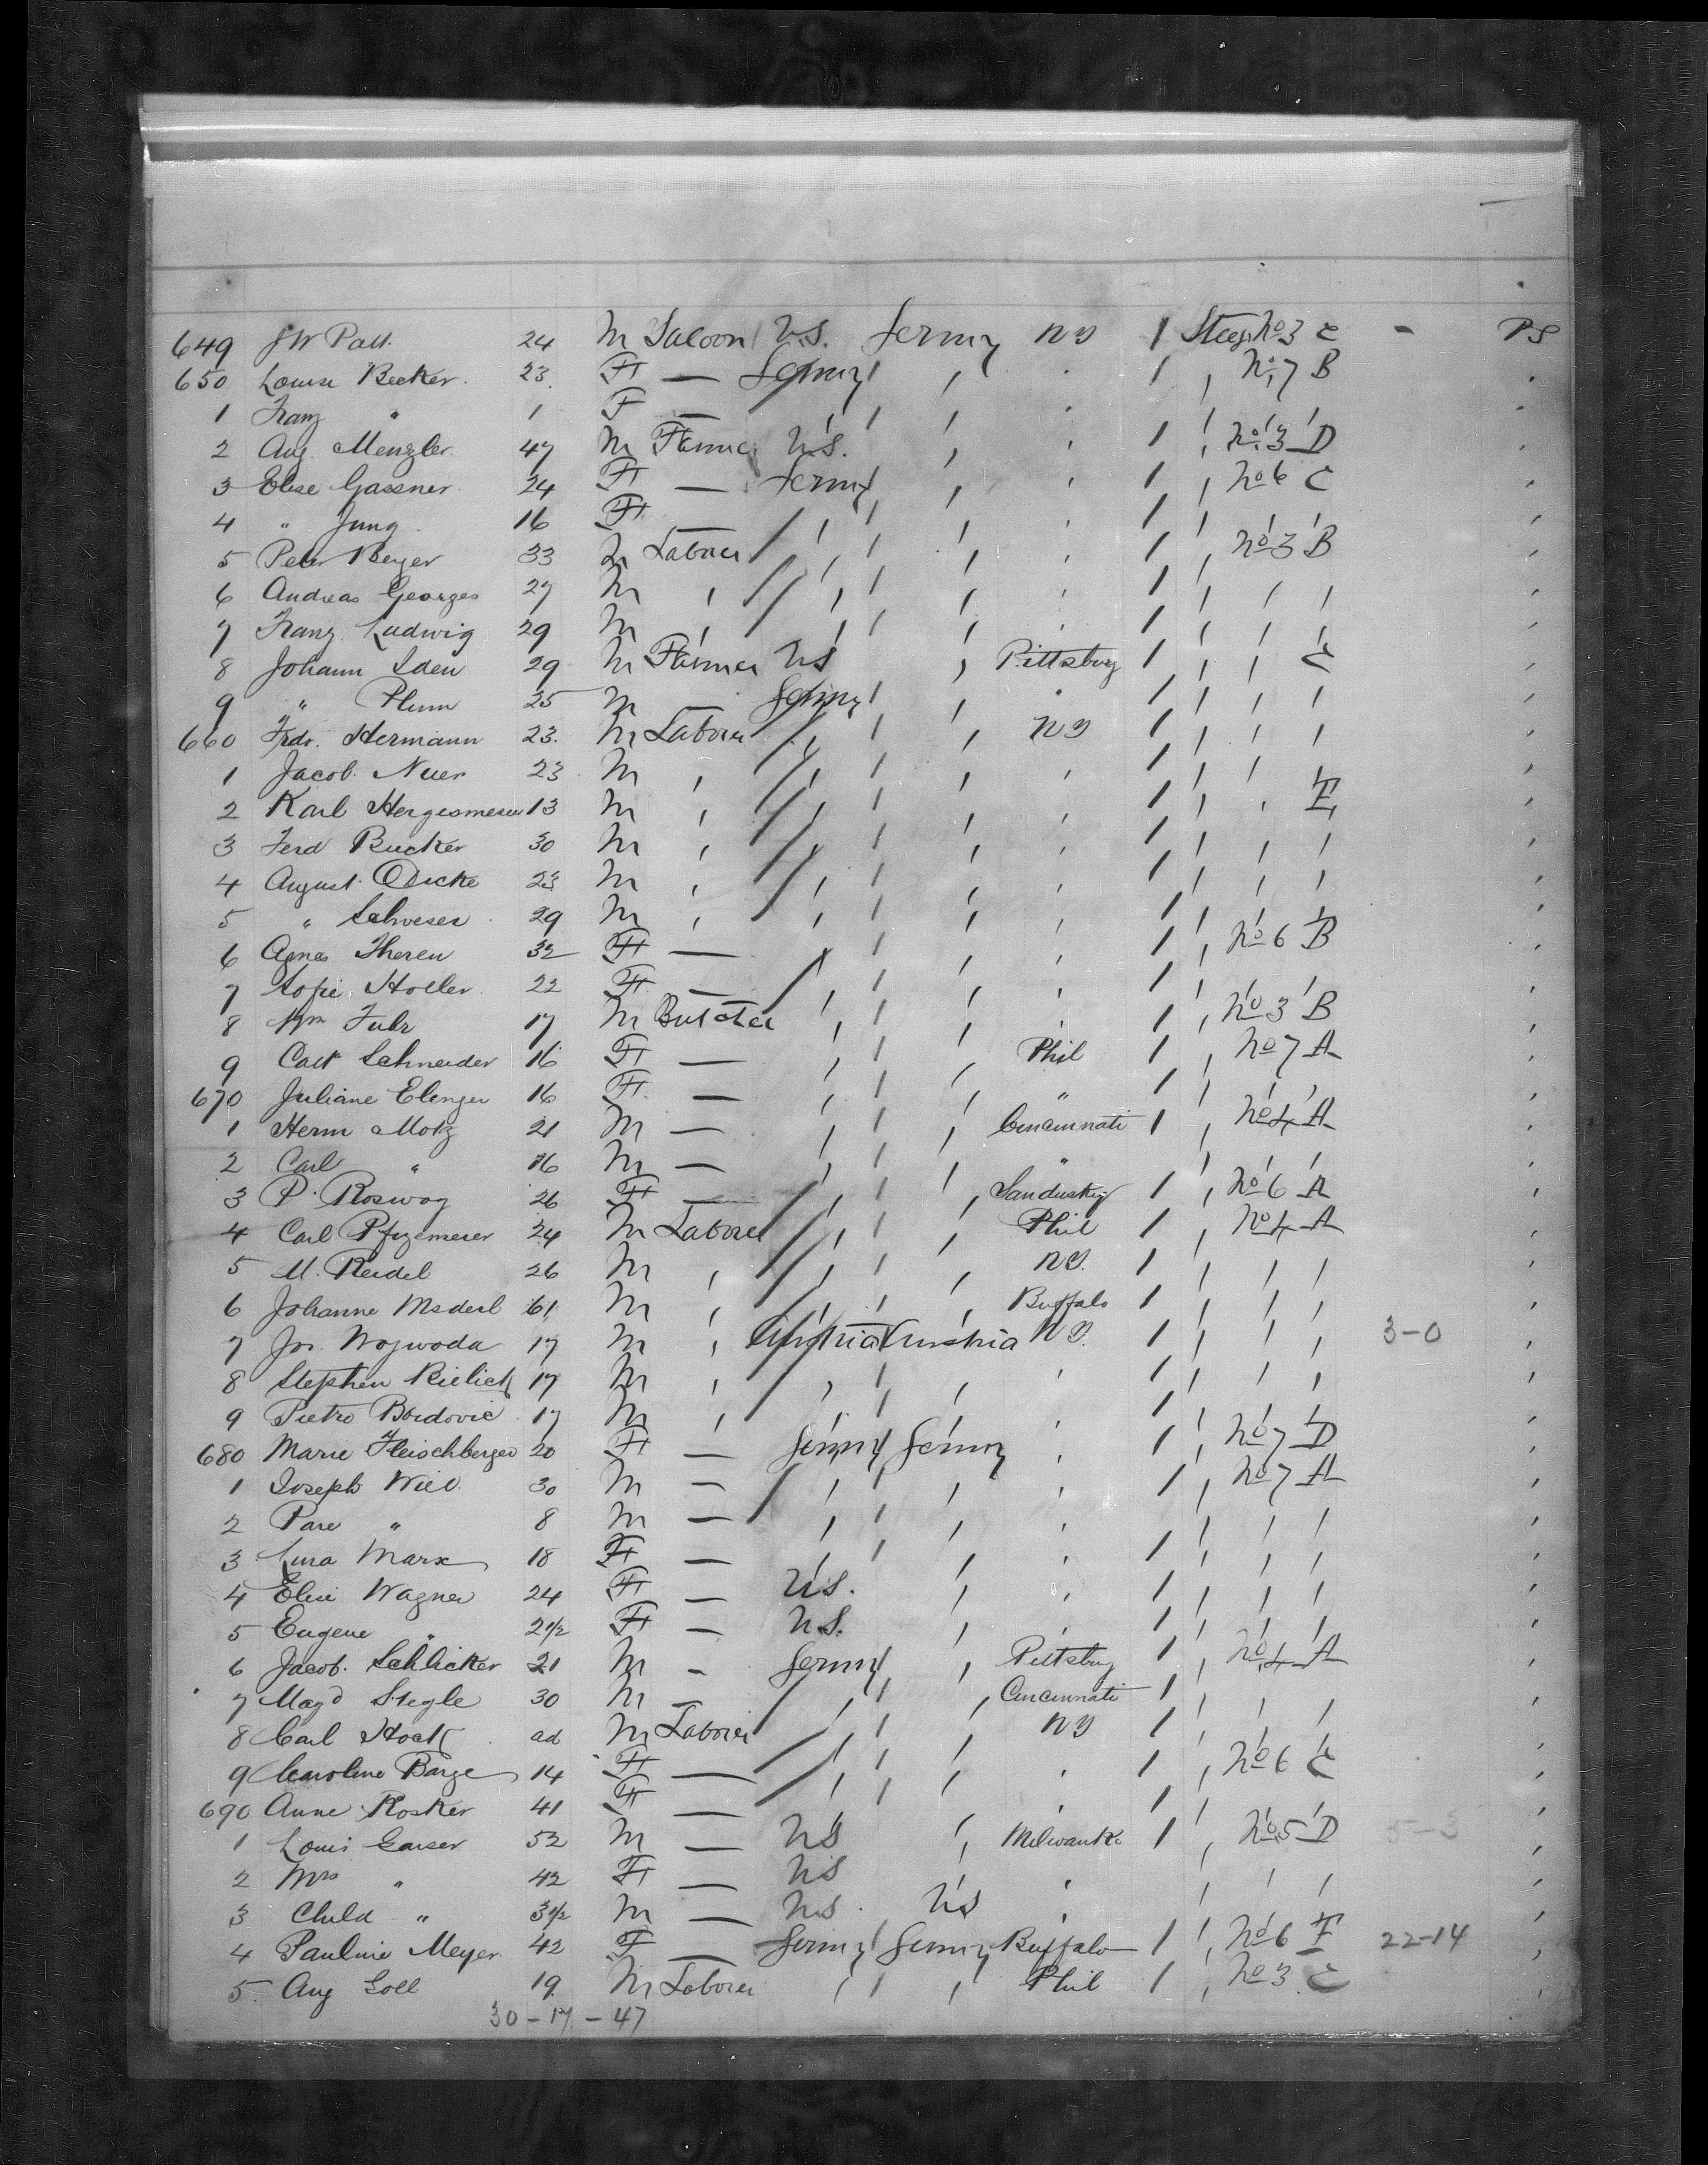 649 JW Patt. 24 M Saloon U.S. Germy NY 1 Steeg No 3 C - PS
650 Louise Becker. 23. F — Germy ' ' . 1 ' No 7 B
1 Franz " 1 F — ' '
2 Aug. Menzler. 47 M Farmer U.S. ' ' 1 ' No 3 D
3 Elise Gassner. 24 F — Germy ' ' 1 ' No 6 C
4 " Jung. 16 F — ' ' ' ' 1 ' ' '
5 Peter Beyer 33 M Laborer ' ' ' ' 1 ' No 3 B
6 Andreas Georges 27 M ' ' ' ' ' 1 ' ' '
7 Franz Ludwig 29 M ' ' ' ' ' 1 ' ' '
8 Johann Iden 29 M Farmer US ' Pittsburg 1 ' ' C
9 " Plum 25 M Germy ' ' " 1 ' ' '
660 Frdr. Hermann 23. M Laborer ' ' ' NY 1 ' ' '
1 Jacob. Nuer 23 M ' ' ' ' ' 1 ' ' '
2 Karl Hergesmeser 13 M ' ' ' ' ' 1 ' ' E
3 Ferd Bucker 30 M ' ' ' ' ' 1 ' ' '
4 August. Dicke 23 M ' ' ' ' ' 1 ' ' '
5 " Schweser 29 M ' ' ' ' ' 1 ' ' '
6 Agnes Theren 32 F — ' ' ' ' 1 ' No 6 B
7 Sofie Holler. 22 F — ' ' ' ' 1 ' ' '
8 Wm Fuhr 17 M Butcher ' ' ' ' 1 ' No 3 B
9 Cath Schneider 16 F — ' ' ' Phil 1 ' No 7 A
670 Juliane Elenger 16 F. — ' ' ' " 1 ' ' '
1 Herm Motz 21 M — ' ' ' Cincinnati 1 ' No 4 A
2 Carl " 16 M — ' ' ' " ' ' '
3 P. Roswog 26 F — ' ' ' Sandusky 1 ' No 6 A
4 Carl Pfizemeser 24 M Laborer ' ' ' Phil 1 ' No 4 A
5 M. Reidel 26 M ' ' ' ' NY. 1 ' ' '
6 Johanne Mederl 61 M ' ' ' ' Buffalo 1 ' ' '
7 Jos. Wojwoda 17 M ' Austria Austria NY. 1 ' ' ' 3-0
8 Stephen Bielick 17 M ' ' ' ' ' 1 ' ' '
9 Pietro Bordovic 17 M ' ' ' ' ' 1 ' ' '
680 Marie Fleischberger 20 F — Germy Germy ' 1 ' No 7 D
1 Joseph Wild. 30 M — ' ' ' ' 1 ' No 7 A
2 Pare " 8 M — ' ' ' ' ' ' '
3 Lina Marx 18 F — ' ' ' ' 1 ' ' '
4 Elise Wagner 24 F — U.S. ' ' 1 ' ' '
5 Eugene " 2 1/2 F — U.S. ' ' 1 ' ' '
6 Jacob. Schlicker 21 M - Germy ' Pittsburg 1 ' No 4 A
7 Magd Stegle 30 M — ' ' ' Cincinnati 1 ' ' '
8 Carl Hock ad M Laborer ' ' ' NY 1 ' ' '
9 Caroline Barge 14 F — ' ' ' ' 1 ' No 6 C
690 Anne Kosker 41 F — ' ' ' ' 1 ' ' '
1 Louis Gaiser 52 M — US ' Milwauke 1 ' No 5 D 5-3
2 Mrs " 42 F — US ' ' ' ' '
3 Child " 3 1/2 M — U.S. US ' ' ' '
4 Pauline Meyer. 42 F — Germy Germy Buffalo 1 ' No 6 F 22-14
5. Aug Goll 19. M Laborer ' ' ' Phil 1 ' No 3 C
30-17-47